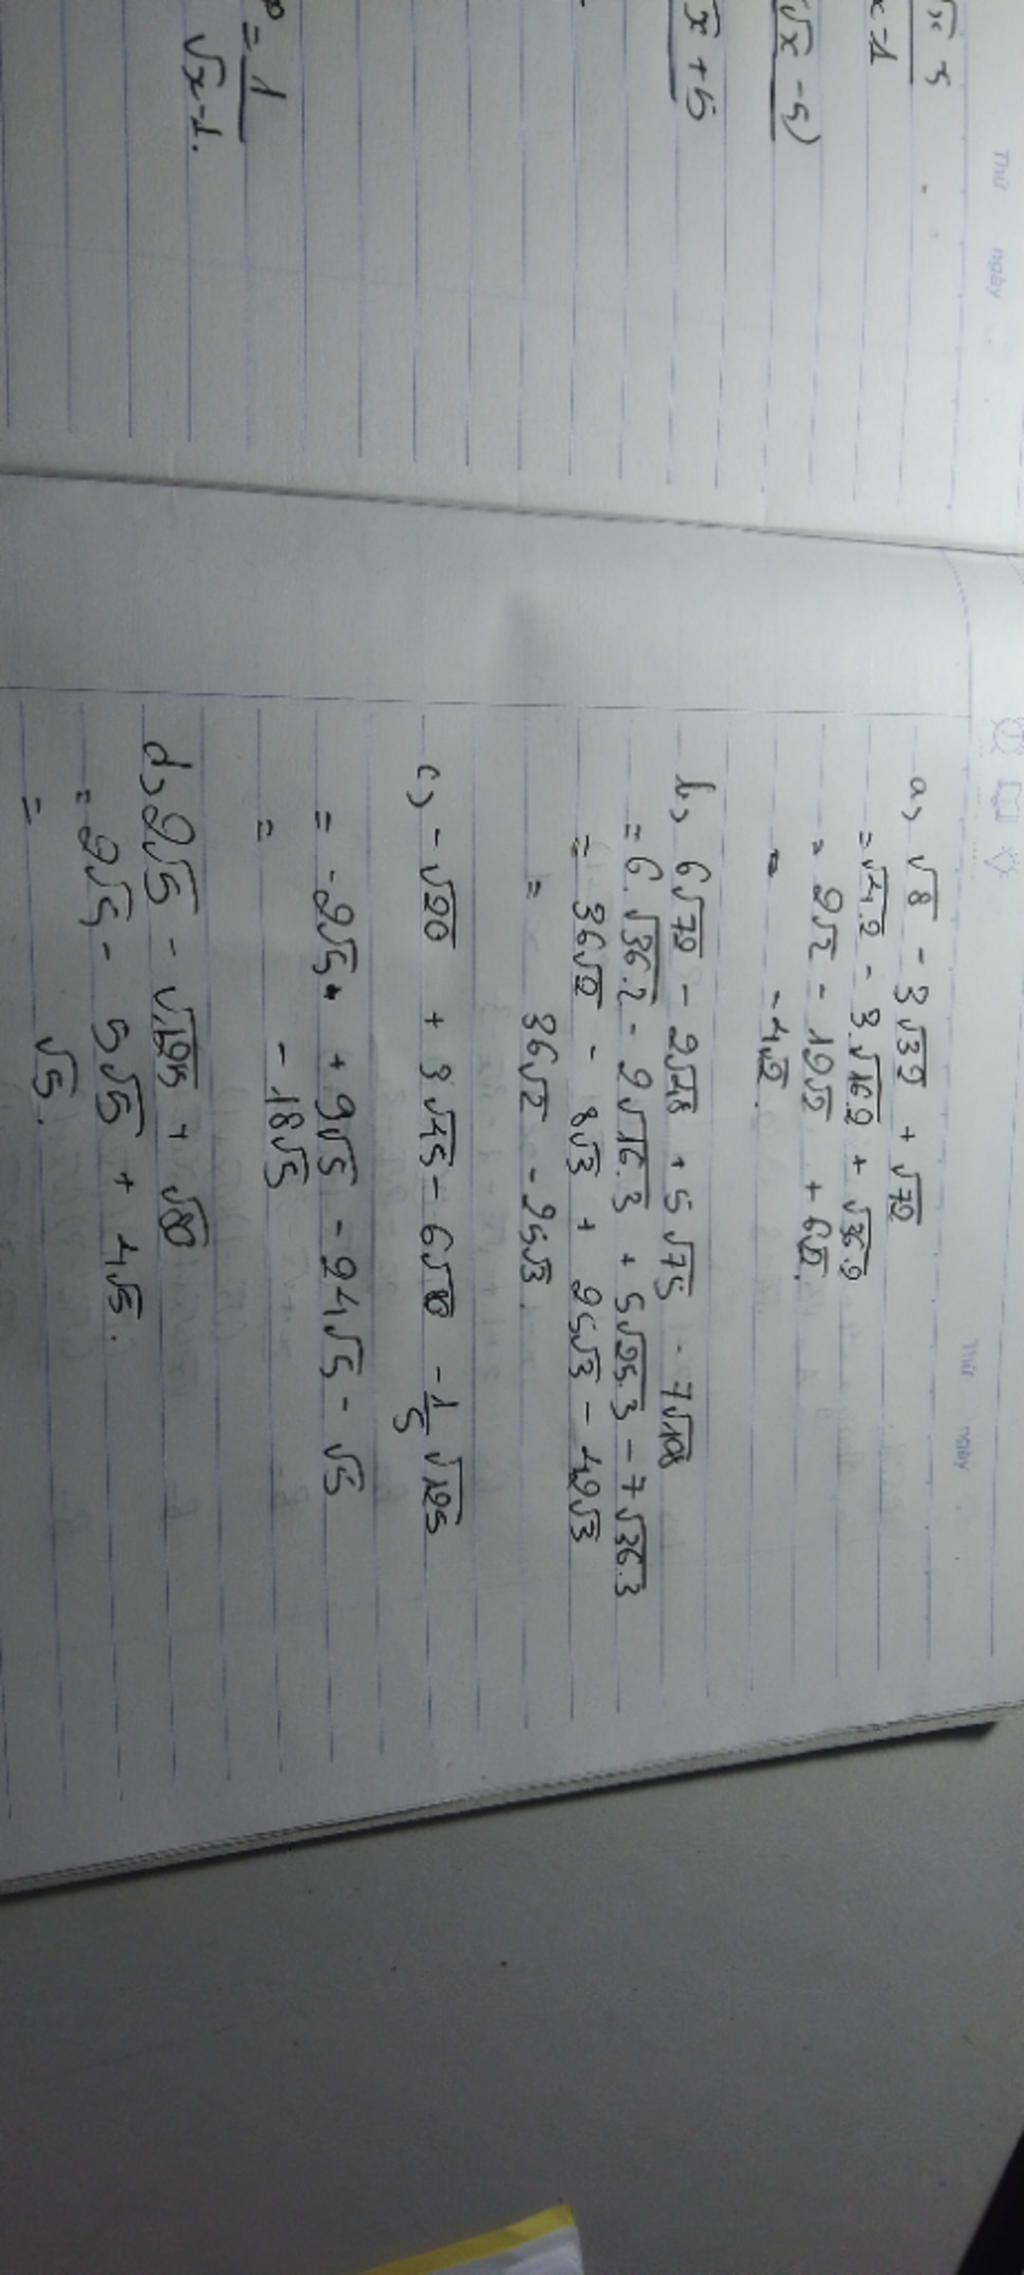 √x - 5
x - 1
√x - 5)
√x + 5
P = 1
√x - 1.
Thứ
ngày
Thứ
ngày
a, √8 - 3√32 + √72
= √4.2 - 3.√16.2 + √36.2
= 2√2 - 12√2 + 6√2.
= -4√2.
b, 6√72 - 2√48 + 5√75 - 7√108
= 6.√36.2 - 2√16.3 + 5√25.3 - 7√36.3
= 36√2 - 8√3 + 25√3 - 42√3
= 36√2 - 25√3.
c, -√20 + 3√45 - 6√80 - 1/5 √125
= -2√5 + 9√5 - 24√5 - √5
= -18√5
d, 2√5 - √125 + √80
= 2√5 - 5√5 + 4√5.
= √5.